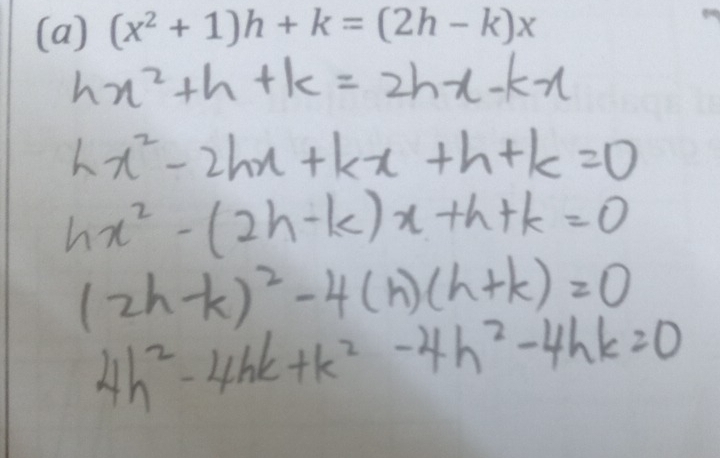 (a) (x² + 1)h + k = (2h – k)x
hx² + h + k = 2hx - kx
hx² - 2hx + kx + h + k = 0
hx² - (2h - k)x + h + k = 0
(2h - k)² - 4(h)(h + k) = 0
4h² - 4hk + k² - 4h² - 4hk = 0